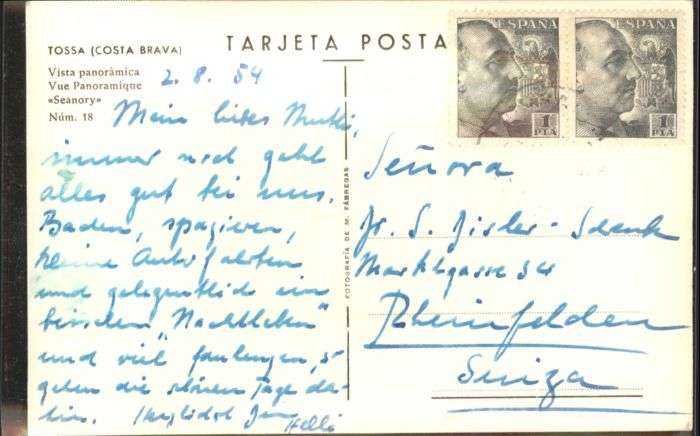 TOSSA (COSTA BRAVA)
TARJETA POSTA
Vista panoràmica
Vue Panoramique
«Seanory»
Núm. 18
2.8.54
Mein liebes Mutti,
immer noch geht
alles gut bei uns.
Baden, spazieren,
kleine Autofahrten
und gelegentlich ein
bisschen "Nachtleben"
und viel faulenzen, so
gehen die schönen Tage da-
hin. Herzlichst
FOTOGRAFÍA DE M. FÁBREGAS
ESPAÑA
1
PTA
ESPAÑA
1
PTA
Señora
Fr. S. Disler-Schenk
Marktgasse 34
Rheinfelden
Suiza